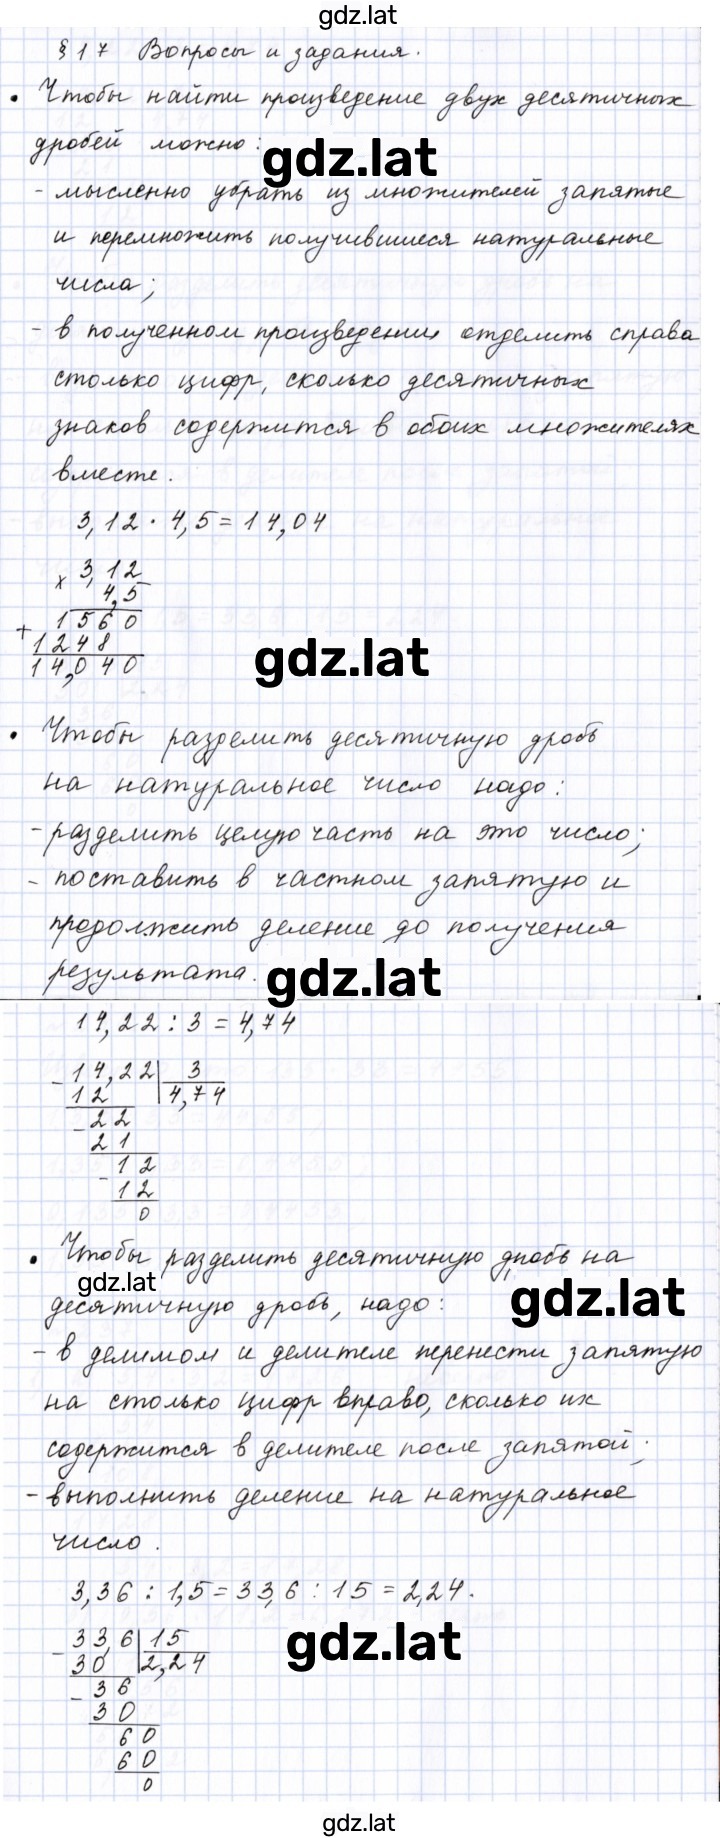 gdz.lat
§ 17 Вопросы и задания.
• Чтобы найти произведение двух десятичных
дробей можно:
gdz.lat
- мысленно убрать из множителей запятые
и перемножить получившиеся натуральные
числа;
- в полученном произведении отделить справа
столько цифр, сколько десятичных
знаков содержится в обоих множителях
вместе.
3,12 · 4,5 = 14,04
× 3,12
4,5
+ 1560
1248
14,040
gdz.lat
• Чтобы разделить десятичную дробь
на натуральное число надо:
- разделить целую часть на это число;
- поставить в частном запятую и
продолжить деление до получения
результата.
gdz.lat
14,22 : 3 = 4,74
- 14,22 | 3
12 | 4,74
- 22
21
- 12
12
0
• Чтобы разделить десятичную дробь на
gdz.lat
десятичную дробь, надо:
gdz.lat
- в делимом и делителе перенести запятую
на столько цифр вправо, сколько их
содержится в делителе после запятой;
- выполнить деление на натуральное
число.
3,36 : 1,5 = 33,6 : 15 = 2,24.
- 33,6 | 15
30 | 2,24
- 36
30
60
60
0
gdz.lat
gdz.lat